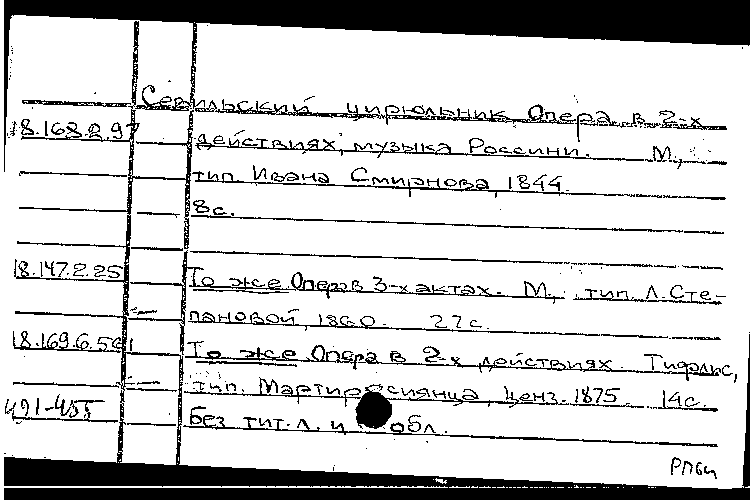 Севильский цирюльник. Опера в 2-х
18.168.2.97 действиях, музыка Россини. М.,
тип. Ивана Смирнова, 1844.
8с.
18.147.2.25 То же. Опера в 3-х актах. М., тип. Л. Сте-
пановой, 1860. 27с.
18.169.6. То же. Опера в 2-х действиях. Тифлис,
тип. Мартиросиянца, ценз. 1875. 14с.
491-455 без тит. л. и обл.